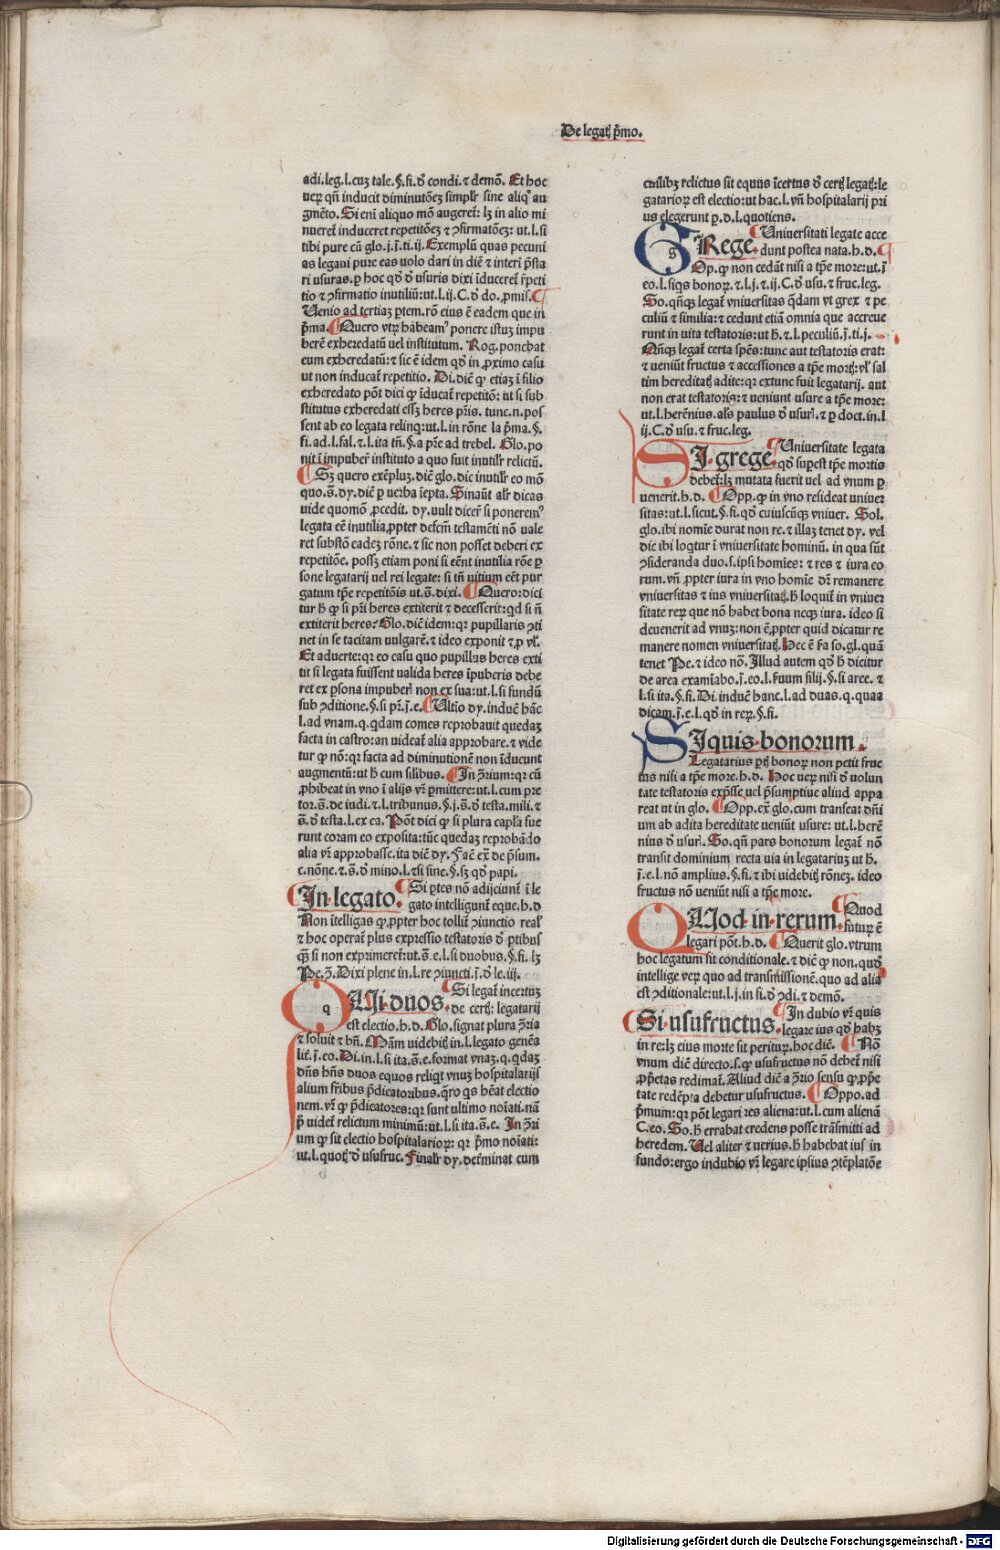 De legatꝭ p̄mo.
adi.leg.l.cuʒ tale.§.fi.ð condi.⁊ demō. Et hoc
veꝝ qñ inducit diminutōeʒ simplr̄ sine aliqͦ au
gmēto. Si em̄ aliquo mō augeret: lʒ in alio mi
nueret induceret repetitōeʒ ⁊ ꝯfirmatōeʒ: ut.l.si
tibi pure cū glo.j.s̄.ti.ij. Exemplū quas pecuni
as legaui pure eas uolo dari in diē ⁊ interī p̄sta
ri usuras. ꝑ hoc qð ð usuris dixi īduceret̄ r̄peti
tio ⁊ ꝯfirmatio inutiliū: ut.l.ij.C.ð do.ꝓmiſ. ¶
Uenio ad tertiaʒ ꝑtem. rō eius ē eadem que in
p̄ma. ¶ Quero vtꝝ hābeamꝰ ponere istuʒ impu
berē exheredatū uel institutum. Rog. ponebat
eum exheredatū: ⁊ sic ē idem qð in ꝓximo casu
ut non inducat̄ repetitio. Di. dic̄ ꝙ etiaʒ ī filio
exheredato pōt dici ꝙ īducat̄ repetitō: ut si sub
stitutus exheredati essʒ heres pr̄is. tunc.n. pos
sent ab eo legata relinqͥ: ut.l. in rōne la p̄ma.§.
fi.ad.l.fal.⁊.l.ita tñ.§.a pr̄e ad trebel. Glo. po
nit ī impuberͤ instituto a quo fuit inutilr̄ relictū.
¶ Sʒ quero exēpluʒ. dic̄ glo. dic inutilr̄ eo mō
quo.s̄.dy. dic̄ ꝑ uerba īepta. Sinaūt alr̄ dicas
uide quomō ꝓcedit. dy. vult dicerͤ si poneremꝰ
legata eē inutilia ꝓpter defcm̄ testamēti nō vale
ret substō eadeʒ rōne. ⁊ sic non posset deberi ex
repetitōe. possʒ etiam poni si eēnt inutilia rōe ꝑ
sone legatarij uel rei legate: si tñ uitium eēt pur
gatum tpͤ repetitōis ut.s̄. dixi. ¶ Quero: dici
tur ħ ꝙ si pr̄i heres extiterit ⁊ decesserit: qd si ñ
extiterit heres? Glo. dic̄ idem: qr pupillaris ꝯti
net in se tacitam uulgarē. ⁊ ideo exponit ⁊ ꝓ vl̄.
Et aduerte: qr eo casu quo pupillus heres exti
tit si legata fuissent ualida heres īpuberis debe
ret ex ꝑsona impuberͤ non ex sua: ut.l.si fundū
sub ꝯditione.§.si pr̄.s̄.e. ¶ Ultīo dy. induc̄ hāc
l. ad vnam.q. qdam comes reprobauit quedaʒ
facta in castro: an uideat̄ alia approbare. ⁊ vide
tur ꝙ nō: qr facta ad diminutionē non īducunt
augmentū: ut ħ cum silibus. ¶ In ꝯr̄ium: qr cū
ꝓhibeat in vno ī alijs vr̄ ꝑmittere: ut.l. cum pre
tor.s̄.de iudi.⁊.l.tribunus.§.j.s̄.ð testa.mili.⁊
s̄.ð testa.l.ex ea. Pōt dici ꝙ si plura capl̄a fue
runt coram eo exposita: tūc quedaʒ reprobādo
alia vr̄ approbasse. ita dic̄ dy. Fac̄ ex̄ de p̄sum.
c. nōne.⁊.s̄.ð mino.l.⁊si sine.§.sʒ qð papi.
In legato. ¶ Si ꝑtes nō adijciunt̄ ī le
gato intelligunt̄ eque.h.d
Non īntelligas ꝙ ꝓpter hoc tollit̄ ꝯiunctio real̄
⁊ hoc operat̄ plus expressio testatoris ð ꝑtibus
qʒ si non exprimeret̄: ut.s̄.e.l.si duobus.§.fi. lʒ
Pe.ꝯ. Dixi plene in.l. re ꝯiuncti.s̄.ð le.iij.
QUi duos. ¶ Si legat̄ incertuʒ
de certꝭ: legatarij
est electio.h.d. Glo. signat plura ꝯr̄ia
⁊ soluit ⁊ bn̄. Mām uidebitꝭ in.l. legato genēa
lit̄.s̄.eo. Di. in.l.si ita.s̄.e. format vnaʒ.q. qdaʒ
dn̄s hn̄s duos equos reliqt vnuʒ hospitalarijs
alium fr̄ibus p̄dicatoribus. qr̄o qs hēat electio
nem. vr̄ ꝙ p̄dicatores: qr sunt ultimo noīati. nā
ꝑ videt̄ relictum minimū: ut.l.si ita.s̄.e. In ꝯr̄i
um ꝙ sit electio hospitalarioꝝ: qr p̄mo noīati:
ut.l. quotꝭ ð usufruc. Finalr̄ dy. det̄minat cum
cuilibʒ relictus sit equus īcertus ð certꝭ legatꝭ: le
gatarioꝝ est electio: ut hac.l. vñ hospitalarij pri
us elegerunt ꝑ.d.l.quotiens.
GRege. ¶ Uniuersitati legate acce
dunt postea nata.h.d. ¶
Op. ꝙ non cedāt nisi a tpͤ more: ut.s̄
eo.l.siqs bonoꝝ.⁊.l.j.⁊.ij.C.ð usu.⁊ fruc.leg.
So. qñqʒ legat̄ vniuersitas qdam vt grex ⁊ pe
culiū ⁊ similia: ⁊ cedunt etiā omnia que accreue
runt in vita testatoris: ut ħ.⁊.l.peculiū.s̄.ti.j.
Qñqʒ legat̄ certa spēs: tunc aut testatoris erat:
⁊ ueniūt fructus ⁊ accessiones a tpͤ mortꝭ: vl̄ sal
tim hereditatꝭ adite: qr extunc fuit legatarij. aut
non erat testatoris: ⁊ veniunt usure a tpͤ more:
ut.l.herēnius. als̄ paulus ð usur̄.⁊ ꝑ doct. in.l
ij.C.ð usu.⁊ fruc.leg.
SI grege. ¶ Uniuersitate legata
qð suꝑest tpͤ mortis
debet̄: lʒ mutata fuerit uel ad vnum ꝑ
uenerit.h.d. ¶ Opp. ꝙ in vno resideat vniuer
sitas: ut.l. sicut.§.fi. qð cuiuscūqʒ vniuer. Sol.
glo. ibi nomīe durat non re. ⁊ illaʒ tenet dy. vel
dic ibi loqtur ī vniuersitate hominū. in qua sūt
ꝯsideranda duo.s. ipsi homīes: ⁊ res ⁊ iura eo
rum. vñ ꝓpter iura in vno homīe dn̄ remanere
vniuersitas ⁊ ius vniuersitatꝭ. ħ loquit̄ in vniuer
sitate reꝝ que nō habet bona neqʒ iura. ideo si
deuenerit ad vnuʒ: non ē ꝓpter quid dicatur re
manere nomen vniuersitatꝭ. Hec ē fa so. gl. quā
tenet Pe. ⁊ ideo nō. Illud autem qð ħ dicitur
de area examīabo.s̄.eo.l.suum filij.§.si aree.⁊
l.si ita.§.fi. Di. induc̄ hanc.l. ad duas.q. quas
dicam.s̄.e.l. qð in reꝝ.§.fi.
SIquis bonorum.
Legatarius ꝑtꝭ bonoꝝ non petit fruc
tus nisi a tpͤ more.h.d. Hoc ueꝝ nisi ð volun
tate testatoris exp̄sse uel p̄sumptiue aliud appa
reat ut in glo. ¶ Opp. ex̄ glo. cum transeat dn̄i
um ab adita hereditate ueniūt usure: ut.l.herē
nius ð usur̄. So. qñ pars bonorum legat̄ nō
transit dominium recta uia in legatarium ut ħ.
s̄.e.l.non amplius.§.fi.⁊ ibi videbitꝭ rōneʒ. ideo
fructus nō ueniūt nisi a tpͤ more.
QUod in rerum. ¶ Quod
futuꝝ ē
legari pōt.h.d. ¶ Querit glo. vtrum
hoc legatum sit conditionale. ⁊ dic̄ ꝙ non. quð
intellige veꝝ quo ad transmissionē. quo ad alia
est ꝯditionale: ut.l.j. in fi.ð ꝯdi.⁊ demō.
Si usufructus. ¶ In dubio vr̄ quis
legare ius qð habʒ
in re: lʒ eius morte sit periturꝰ. hoc dic̄. ¶ Nō
vnum dic̄ directo.s. ꝙ usufructus nō debet̄ nisi
ꝓp̄etas redimat̄. Aliud dic̄ a ꝯr̄io sensu ꝙ ꝓp̄e
tate redēpta debetur usufructus. ¶ Oppo. ad
p̄mum: qr pōt legari res aliena: ut.l.cum alienā
C.eo. So. ħ errabat credens posse trāsmitti ad
heredem. Uel aliter ⁊ uerius. ħ habebat ius in
fundo: ergo indubio vr̄ legare ipsius ꝯtēplatōe
Digitalisierung gefördert durch die Deutsche Forschungsgemeinschaft - DFG